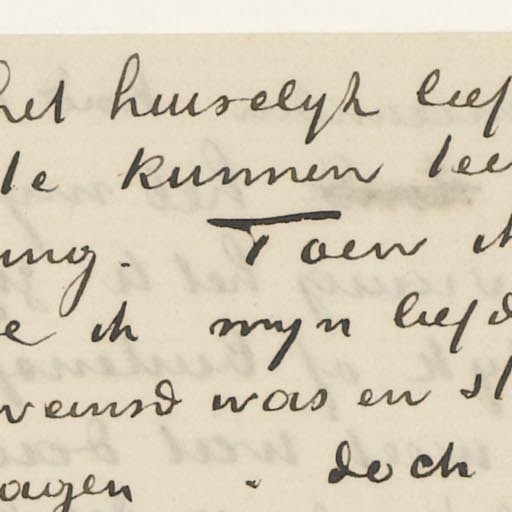 het huiselyk lief
te kunnen lee
ing. Toen ik
e ik myn liefd
veinsd was en st
agen . doch